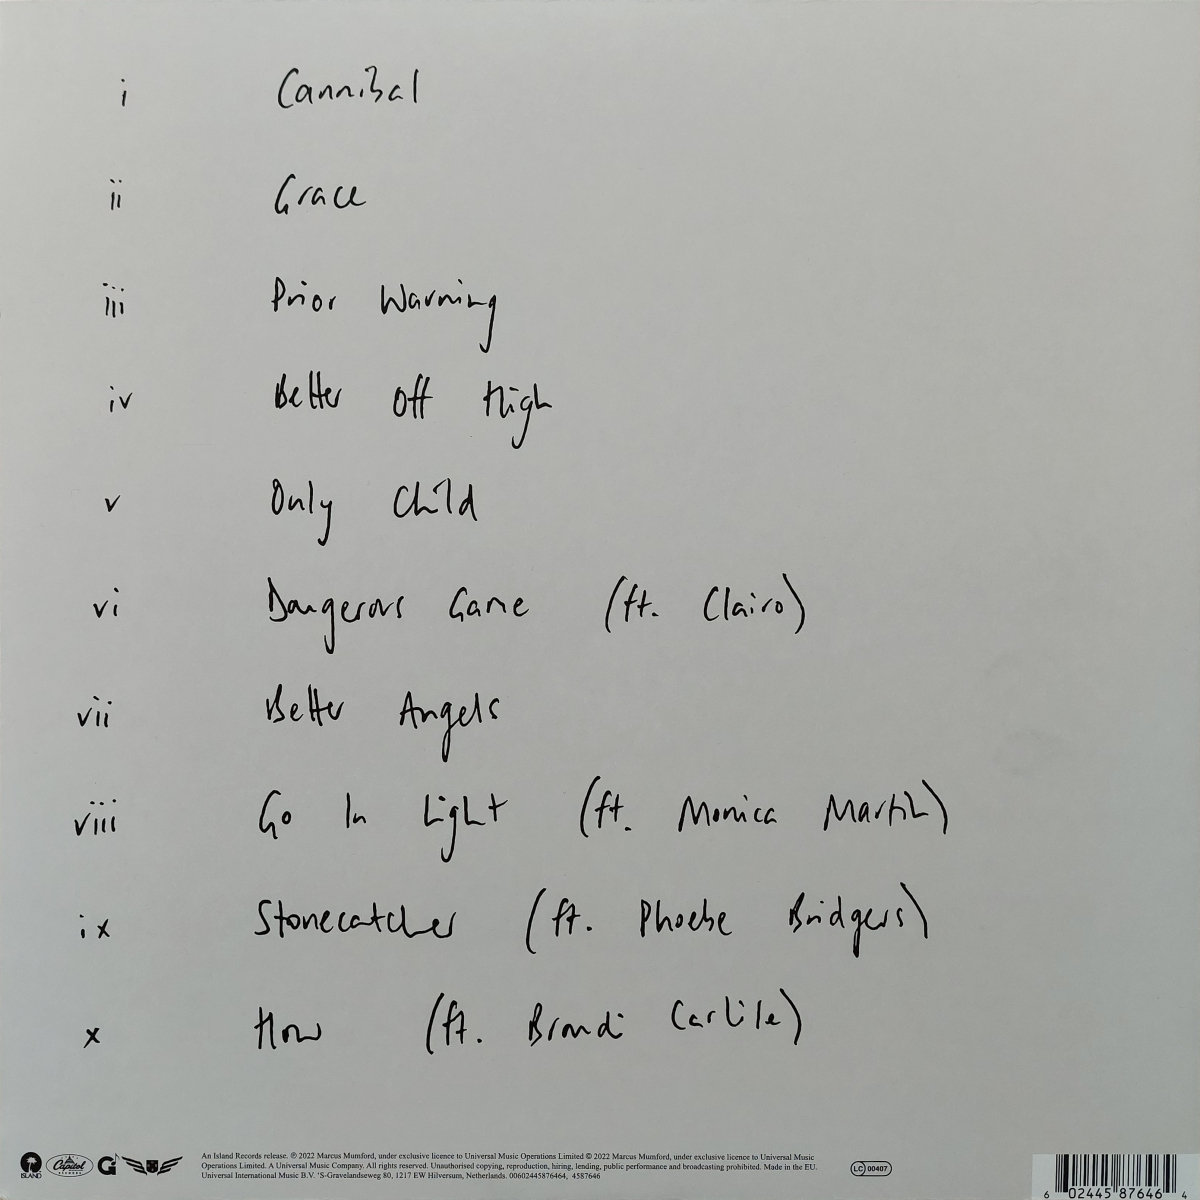 i Cannibal
ii Grace
iii Prior Warning
iv Better Off High
v Only Child
vi Dangerous Game (ft. Clairo)
vii Better Angels
viii Go In Light (ft. Monica Martin)
ix Stonecatcher (ft. Phoebe Bridgers)
x How (ft. Brandi Carlile)
ISLAND Capitol RECORDS G An Island Records release. ℗ 2022 Marcus Mumford, under exclusive licence to Universal Music Operations Limited © 2022 Marcus Mumford, under exclusive licence to Universal Music
Operations Limited. A Universal Music Company. All rights reserved. Unauthorised copying, reproduction, hiring, lending, public performance and broadcasting prohibited. Made in the EU.
Universal International Music B.V. 'S-Gravelandseweg 80, 1217 EW Hilversum, Netherlands. 00602445876464, 4587646
LC 00407
6 02445 87646 4